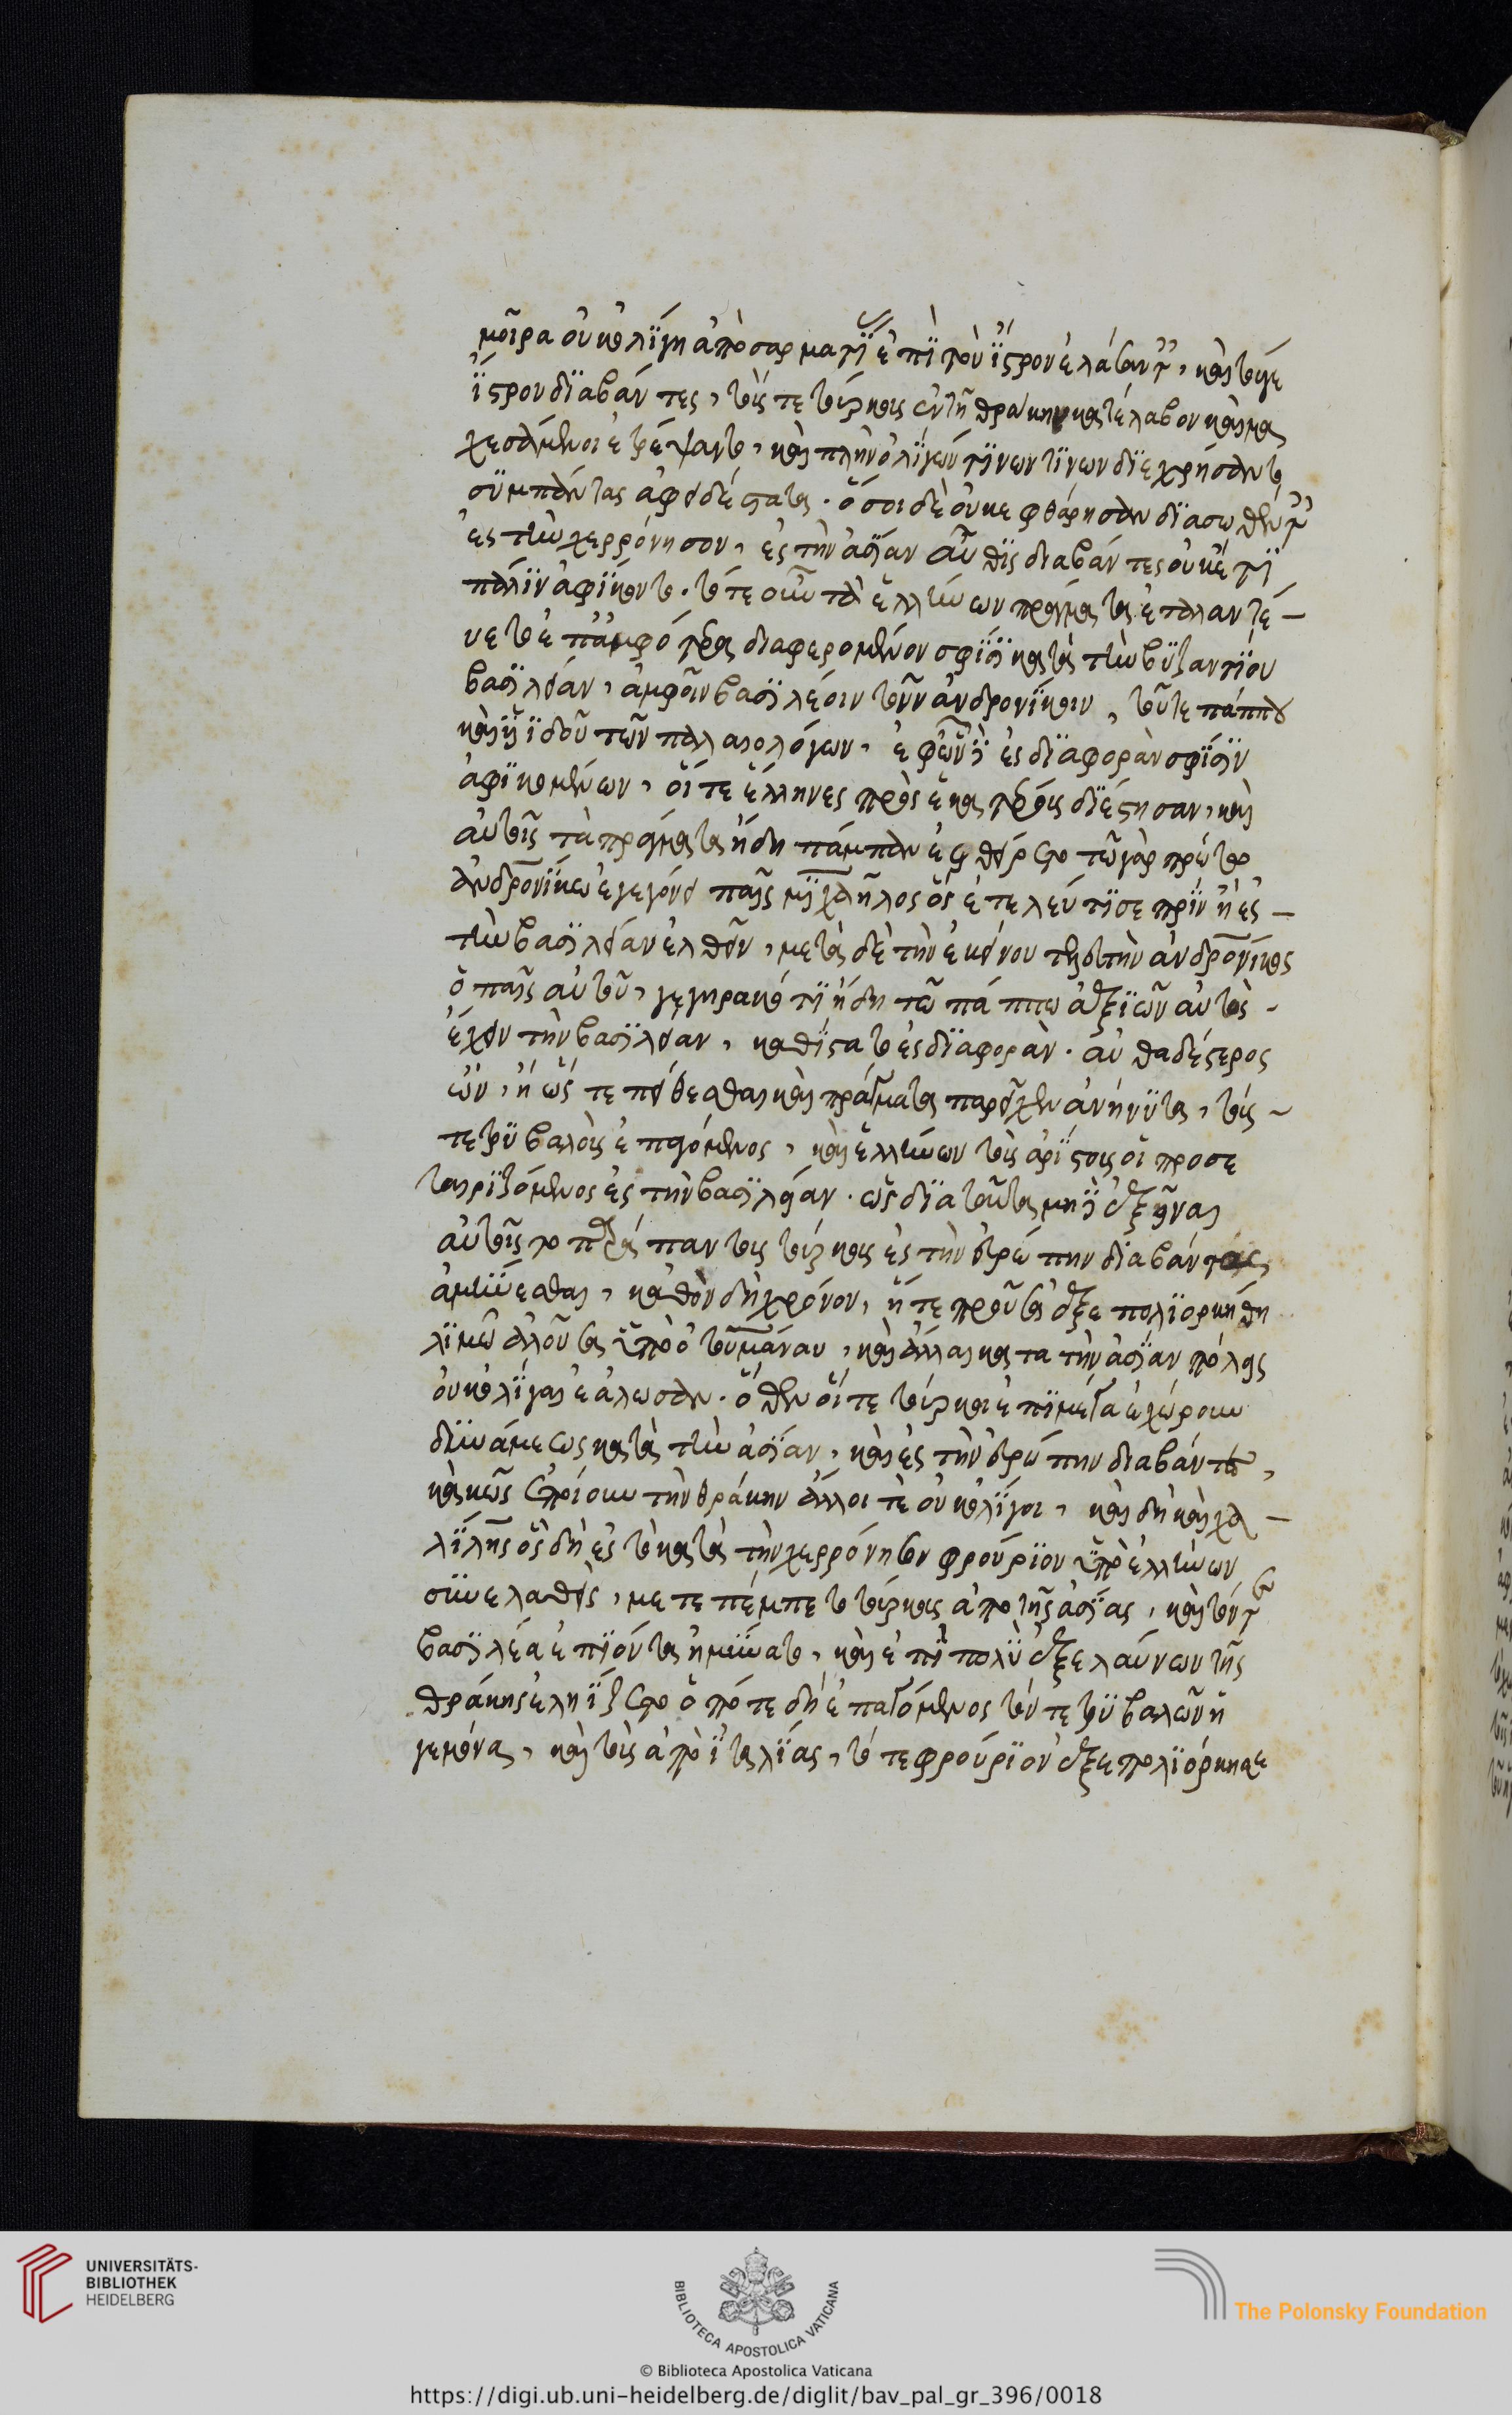 μοῖρα οὐκ ὀλίγη ἀπὸ σαρματίας ἐπὶ τὸν ἴστρον ἐλάσαντες, καὶ τόν τε
ἴστρον διαβάντες, τούς τε τούρκους ἐν τῇ θράκῃ κατέλαβον καὶ μα
χεσάμενοι ἐτρέψαντο, καὶ πλὴν ὀλίγων τινων τίνων διεχρήσαντο
σύμπαντας ἀφειδέστατα. ὅσοι δὲ οὐκ ἐφθάρησαν διασωθέντες
ἐς τὴν χερρόνησον, ἐς τὴν ἀσίαν αὖθις διαβάντες οὐκέτι
πάλιν ἀφίκοντο. τότε οὖν τὰ ἑλλήνων πράγματα ἐταλαντέ-
υετο ἐπ' ἀμφότερα διαφερομένον σφίσι κατὰ τὴν βυζαντίου
βασιλείαν, ἀμφοῖν βασιλέοιν τοῖν ἀνδρονίκοιν, τοῦ τε πάππου
καὶ υἱιδοῦ τῶν παλαιολόγων, ἐφ' ὧν ἐς διαφορὰν σφίσιν
ἀφικομένων, οἵ τε ἕλληνες πρὸς ἑκατέρους διέστησαν, καὶ
αὐτοῖς τὰ πράγματα ἤδη πάμπαν ἐφθείρετο τῷ γὰρ πρώτῳ
ἀνδρονίκῳ ἐγεγόνει παῖς μιχαῆλος ὃς ἐτελεύτησε πρὶν ἢ ἐς
τὴν βασιλείαν ἐλθεῖν, μετὰ δὲ τὴν ἐκείνου τελευτὴν ἀνδρόνικος
ὁ παῖς αὐτοῦ, γεγηρακότι ἤδη τῷ πάππῳ ἀξιῶν αὐτὸς
ἔχειν τὴν βασιλείαν, καθίστατο ἐς διαφοράν. αὐθαδέστερος
ὢν, ἢ ὥστε πείθεσθαι καὶ πράγματα παρεῖχεν ἀνήνυτα, τούς
τε τριβαλοὺς ἐπαγόμενος, καὶ ἑλλήνων τοὺς ἀρίστους οἱ προσε
ταιριζόμενος ἐς τὴν βασιλείαν. ὡς διὰ ταῦτα μηδ' ἐξεῖναι
αὐτοῖς τὸ παράπαν τοὺς τούρκους ἐς τὴν εὐρώπην διαβάντας
ἀμύνεσθαι, καθ' ὃν δὴ χρόνον, ἥ τε προῦσα ἐξεπολιορκήθη
λιμῷ ἁλοῦσα ὑπὸ ὀτουμάνου, καὶ ἄλλαι κατὰ τὴν ἀσίαν πόλεις
οὐκ ὀλίγαι ἑάλωσαν. ὅθεν οἵ τε τοῦρκοι ἐπὶ μέγα ἐχώρουν
δυνάμεως κατὰ τὴν ἀσίαν, καὶ ἐς τὴν εὐρώπην διαβάντες,
κακῶς ἐποίουν τὴν θράκην ἄλλοι τε οὐκ ὀλίγοι, καὶ δὴ καὶ χα-
λίλης ὃς δὴ ἐς τὸ κατὰ τὴν χερρόνησον φρούριον ὑπὸ ἑλλήνων
συνελαθεὶς, μετεπέμπετο τούρκους ἀπὸ τῆς ἀσίας, καὶ τόν τε
βασιλέα ἐπιόντα ἠμύνατο, καὶ ἐπὶ πολὺ ἐξελαύνων τῆς
θράκης ἐληίζετο ὁπότε δὴ ἐπαγόμενος τόν τε τριβαλῶν ἡ
γεμόνα, καὶ τοὺς ἀπὸ ἰταλίας, τό τε φρούριον ἐξεπολιόρκησε
UNIVERSITÄTS-
BIBLIOTHEK
HEIDELBERG
BIBLIOTECA APOSTOLICA VATICANA
The Polonsky Foundation
© Biblioteca Apostolica Vaticana
https://digi.ub.uni-heidelberg.de/diglit/bav_pal_gr_396/0018